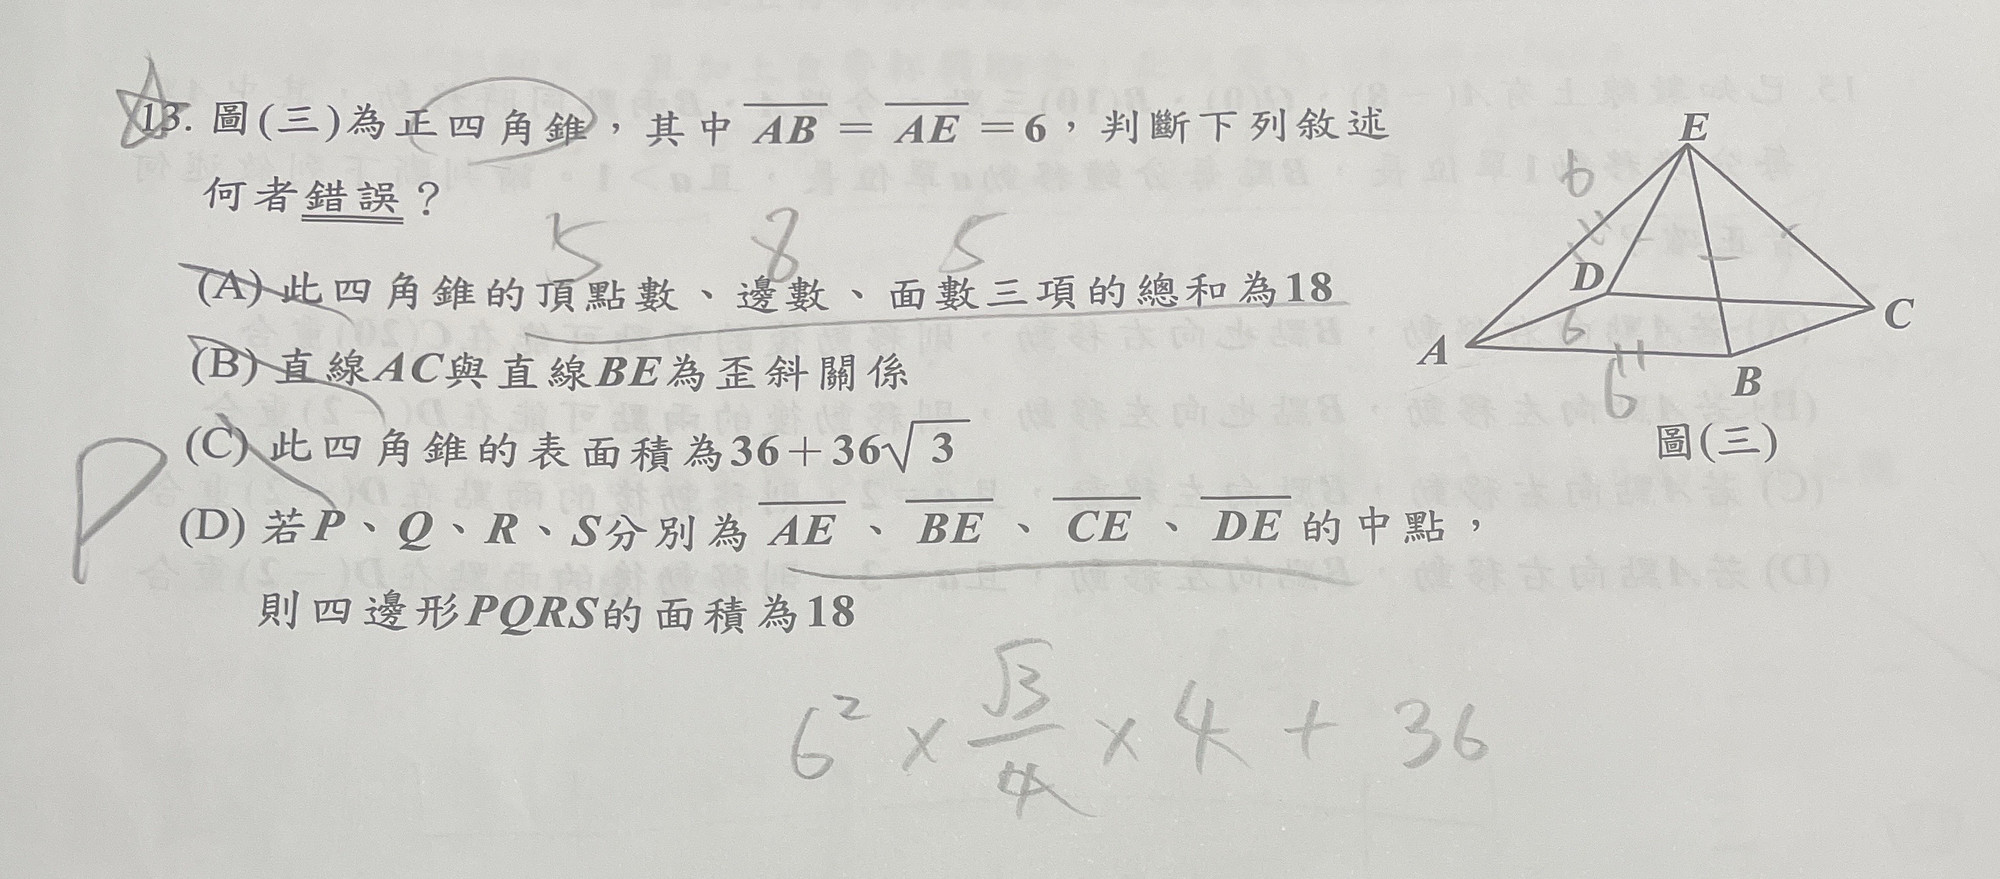 13. 圖(三)為正四角錐，其中 AB = AE = 6，判斷下列敘述
何者錯誤？
5 8 5
(A) 此四角錐的頂點數、邊數、面數三項的總和為18
(B) 直線AC與直線BE為歪斜關係
(C) 此四角錐的表面積為36+36√3
(D) 若P、Q、R、S分別為 AE、BE、CE、DE 的中點，
則四邊形PQRS的面積為18
E
6
D
C
6
A
B
6
圖(三)
6² × √3/4 × 4 + 36